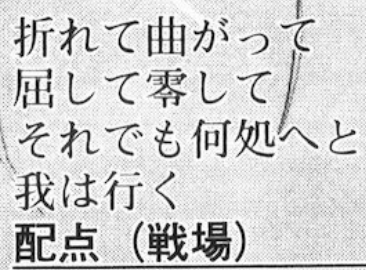 折れて曲がって
屈して零して
それでも何処へと
我は行く
配点（戦場）